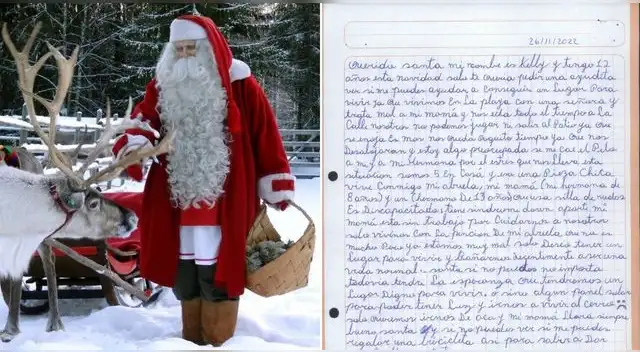 26/11/2022
Querido santa mi nombre es Kelly y tengo 17
años esta navidad solo te queria pedir una ayudita
ver si me puedes ayudar a conseguir un lugar Para
vivir ya que vivimos En la playa con una señora y
trata mal a mi mamá y nos esta todo el tiempo a la
calle nosotros no podemos jugar ni salir al Patio ya que
se enoja En mas nos queda poquito tiempo ya que nos
Desalojaran y estoy algo preocupada se me cae el Pelo
a mi y a mi Hermana por el estres que nos lleva esta
situacion somos 5 En Casa y era una Pieza Chica
vive Conmigo mi abuela, mi mamá (mi hermana de
8 años) y un (hermano De 13 años) que usa silla de ruedas
Es Discapacitado, tiene sindrome down, aparte mi
mamá esta sin trabajo por Cuidarnos a nosotros
solo vivimos Con la Pencion De mi abuela, que no es
mucho Pero ya estamos muy mal solo Deseo tener un
Lugar para vivir y bañarnos decentemente a ser una
vida normal. santa si no puedes no importa
todavia tendre La esperanza que tendremos un
Lugar Digno para vivir, o sino algun panel solar
para poder tener Luz y irnos a vivir al Cerro
solo queremos irnos De aca y mi mamá Llora siempre
bueno santa y si no puedes ver si me puedes
regalar una bicicleta asi para salir a Dar